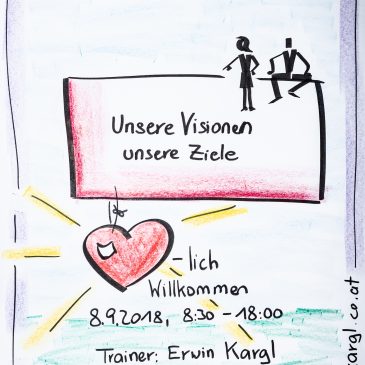 Unsere Visionen
unsere Ziele
-lich
Willkommen
8.9.2018, 8:30 - 18:00
Trainer: Erwin Kargl
kargl.co.at